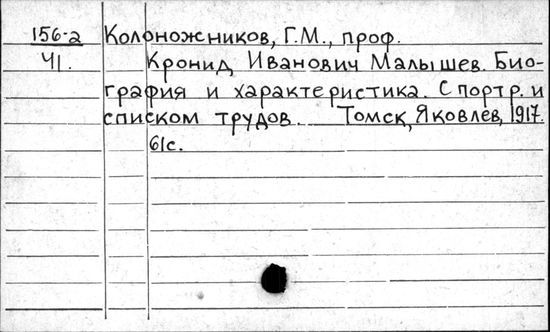 156-2 Колоножников, Г.М., проф.
41. Кронид Иванович Малышев. Био-
графия и характеристика. С портр. и
списком трудов. Томск, Яковлев, 1917.
61с.